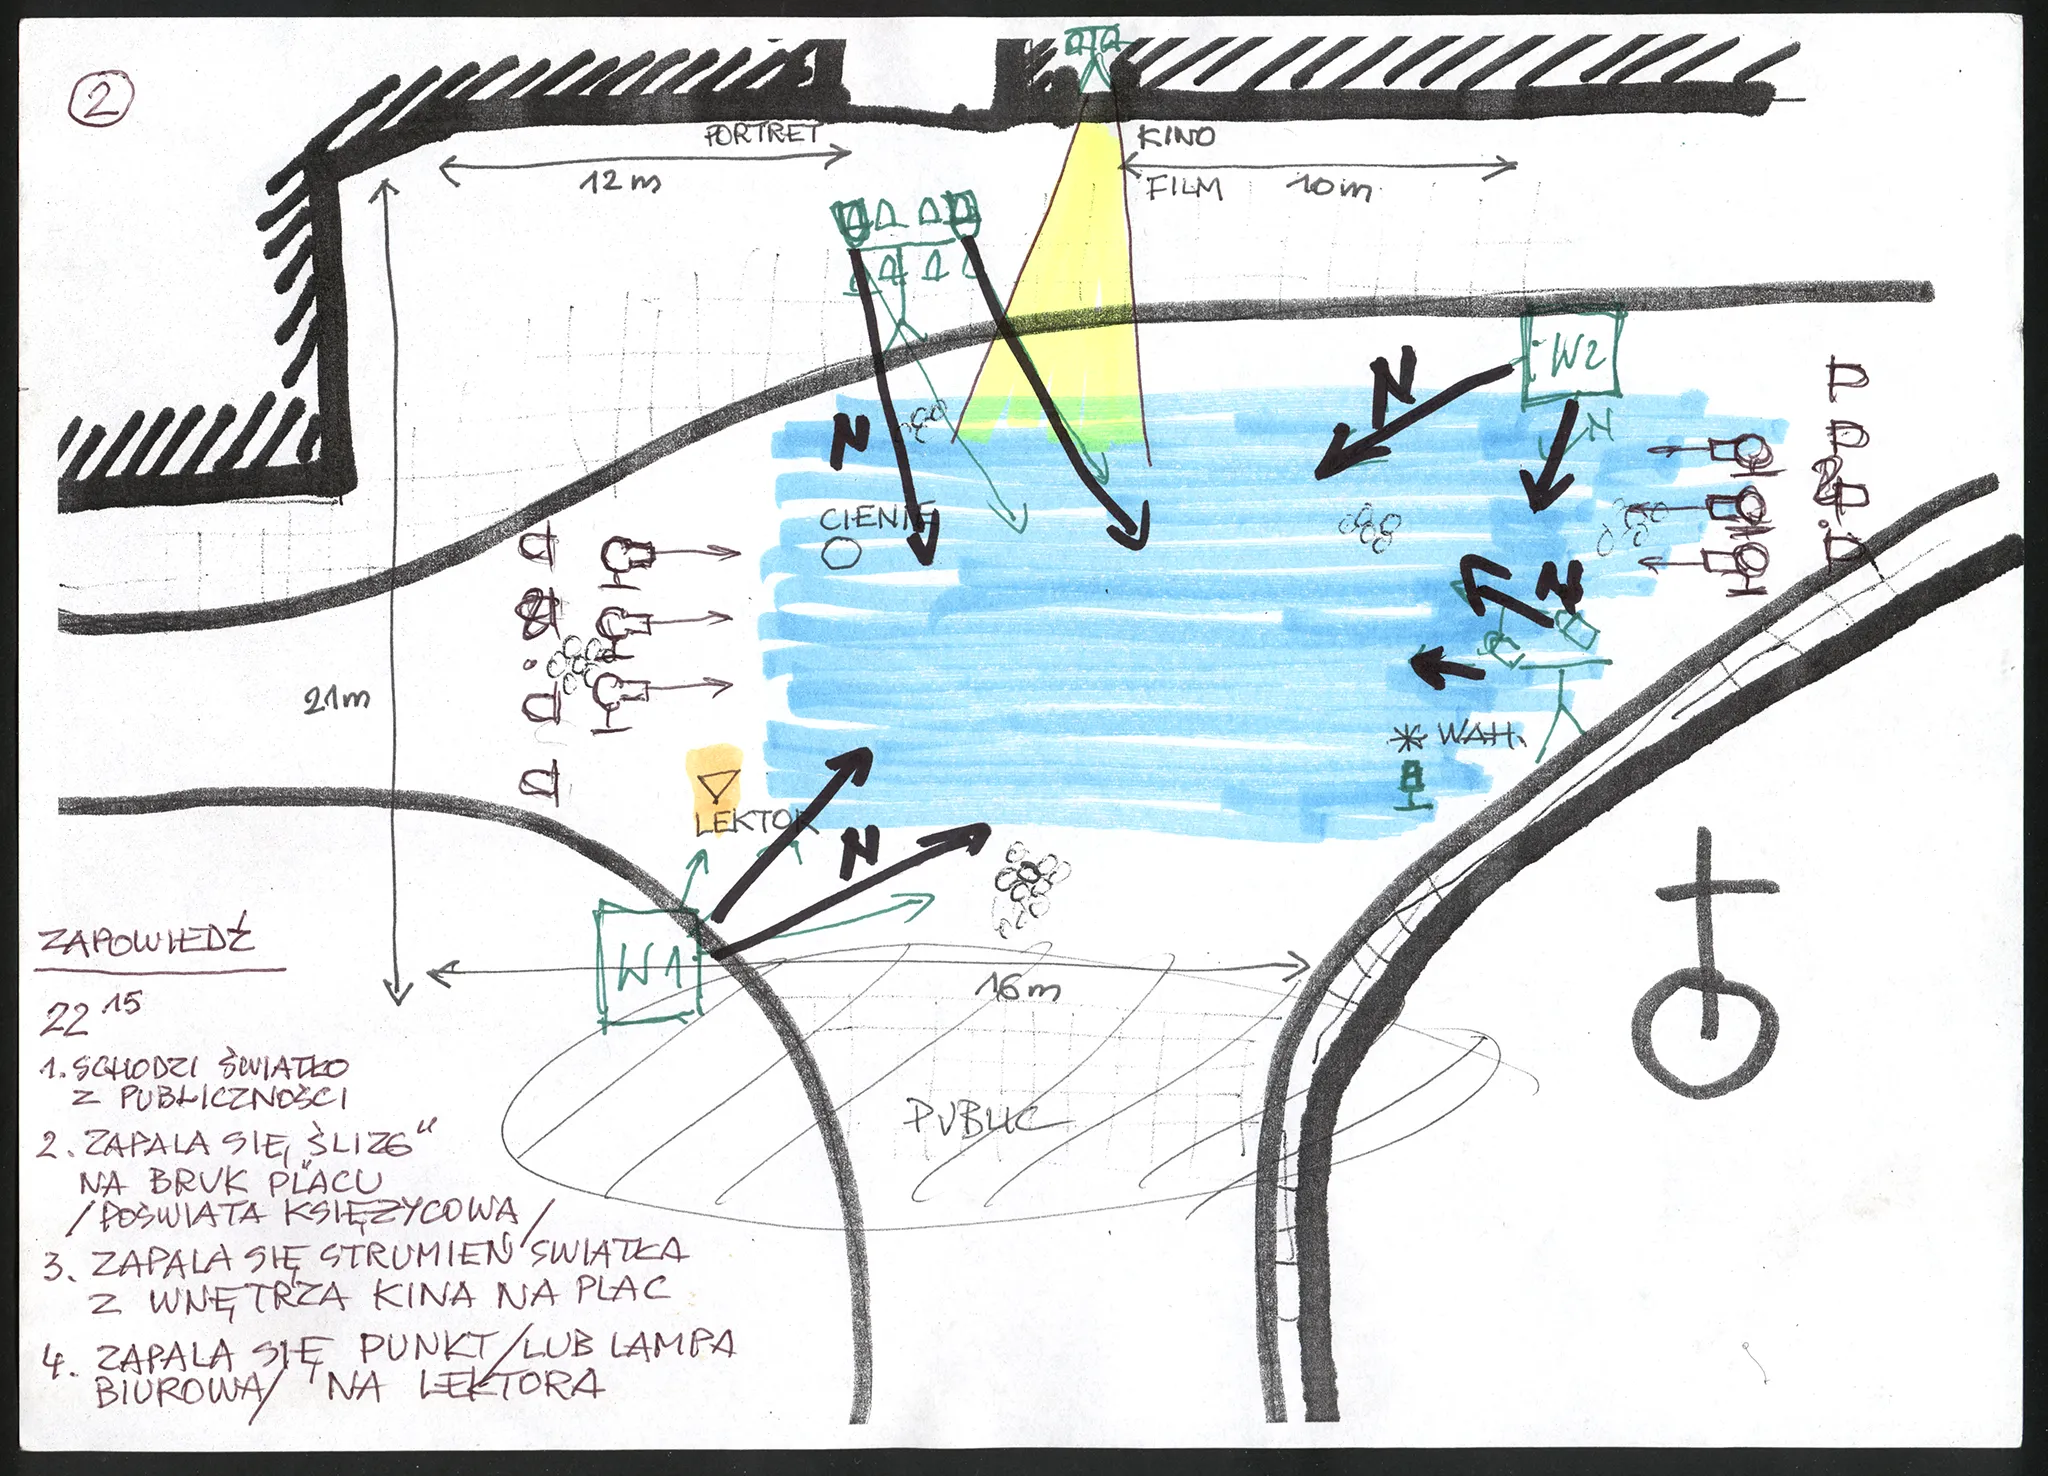 2
PORTRET
12 m
KINO
FILM 10 m
W2
N
N
N
P
P
P
P
CIENIE
N
21 m
* WAH.
LEKTOR
N
W1
16 m
PUBLIC
ZAPOWIEDŹ
22 15
1. SCHODZI ŚWIATŁO
Z PUBLICZNOŚCI
2. ZAPALA SIĘ „ŚLIZG"
NA BRUK PLACU
/POŚWIATA KSIĘŻYCOWA/
3. ZAPALA SIĘ STRUMIEŃ ŚWIATŁA
Z WNĘTRZA KINA NA PLAC
4. ZAPALA SIĘ PUNKT /LUB LAMPA
BIUROWA/ NA LEKTORA